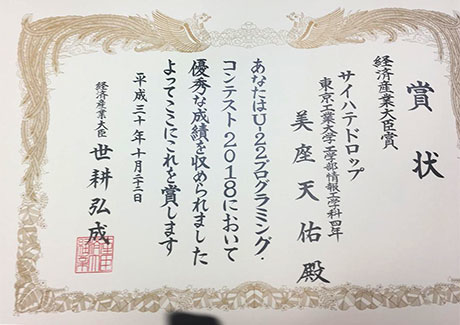 賞状
経済産業大臣賞
サイハテドロップ
東京工業大学工学部情報工学科四年
美座天佑殿
あなたはU-22プログラミング・
コンテスト2018において
優秀な成績を収められました
よってここにこれを賞します
平成三十年十月二十一日
経済産業大臣
世耕弘成